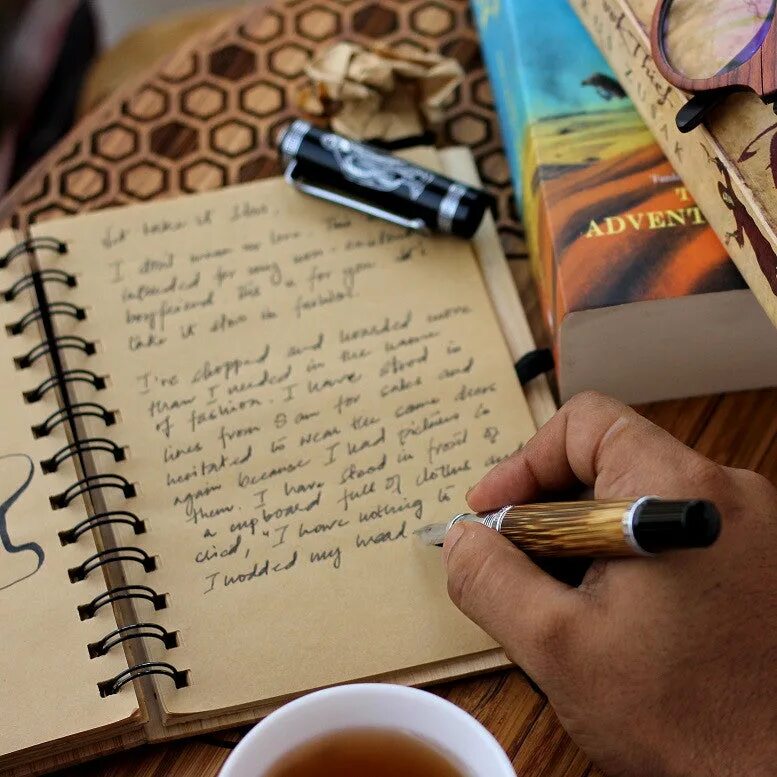 Let take it slow.
I don't mean in love. This
intended for my non-existent
boyfriend. This is for you
take it slow in fashion.
I've shopped and hoarded more
than I needed in the name
of fashion. I have stood in
lines from 8 am for sales and
hesitated to wear the same dress
again because I had pictures in
them. I have stood in front of
a cupboard full of clothes and
cried, "I have nothing to
I nodded my head
ADVENT
USAK